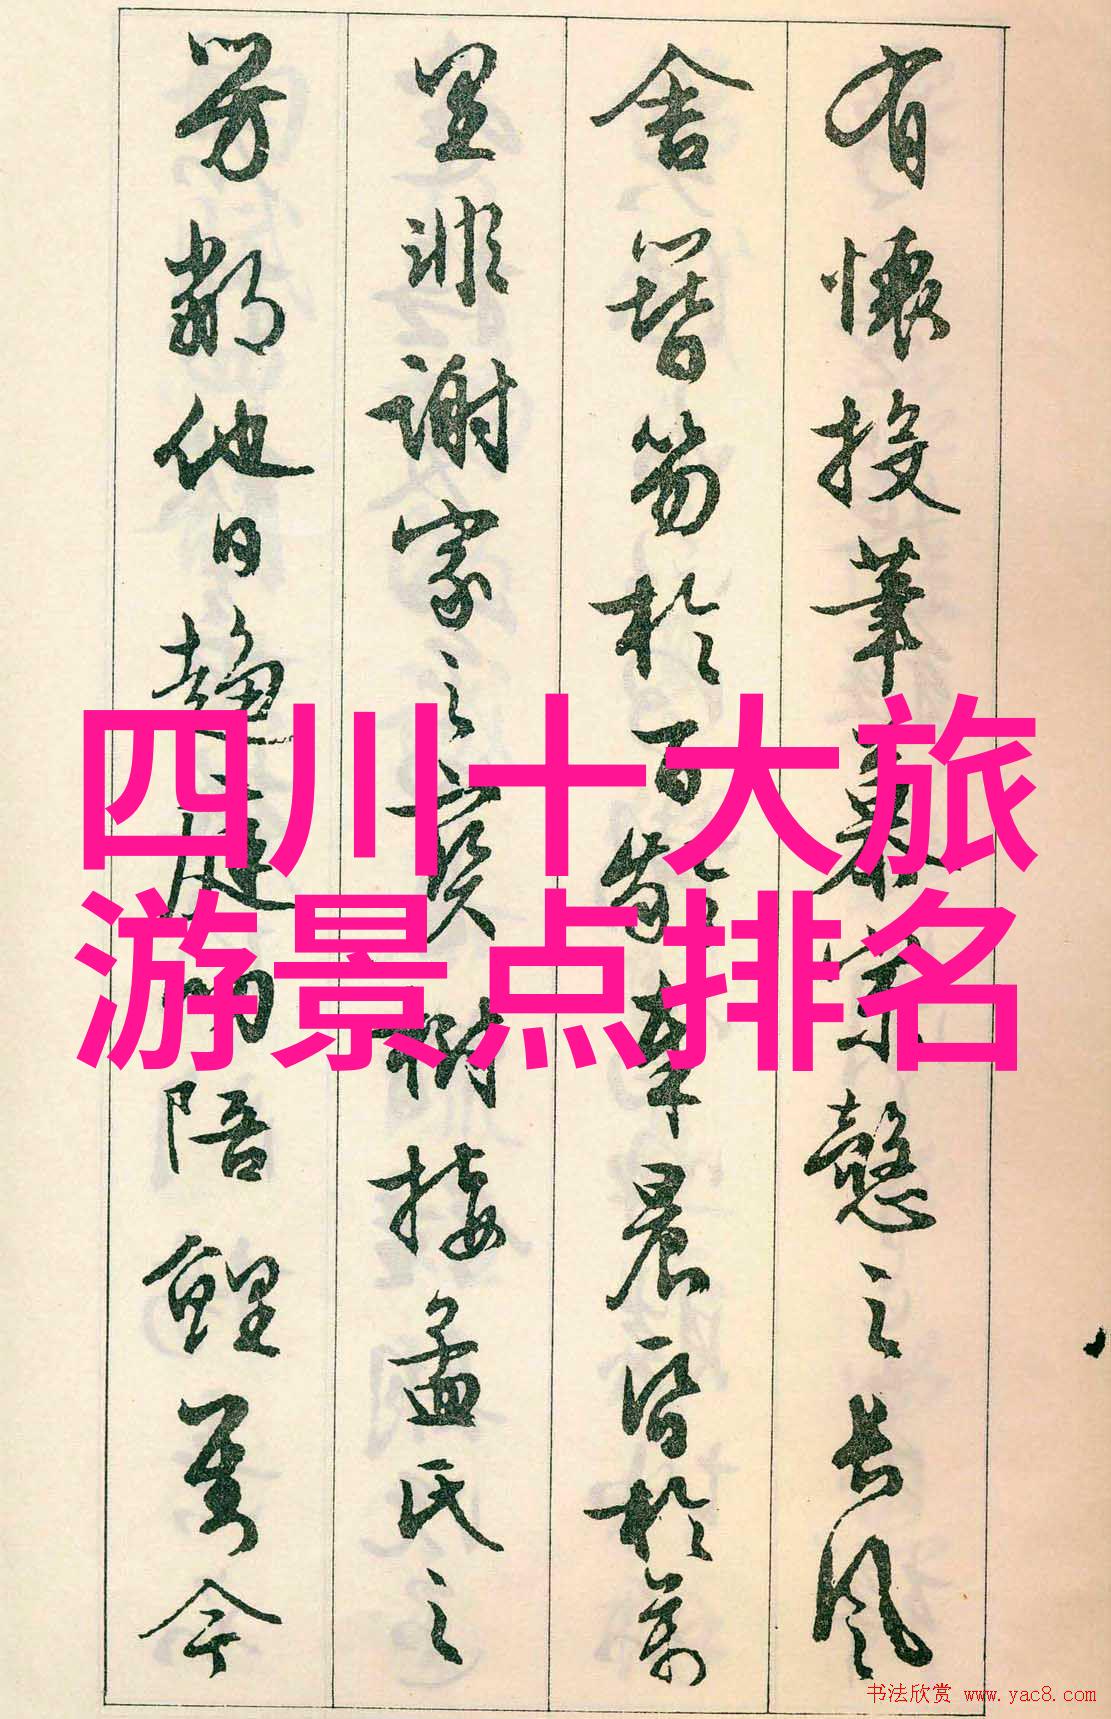 四川十大旅
游景点排名
有懷投筆慕宗慤之長風
舍簪笏於百齡奉晨昏於萬
里非謝家之寶樹接孟氏之
芳鄰他日趨庭叨陪鯉對今
书法欣赏 www.yac8.com